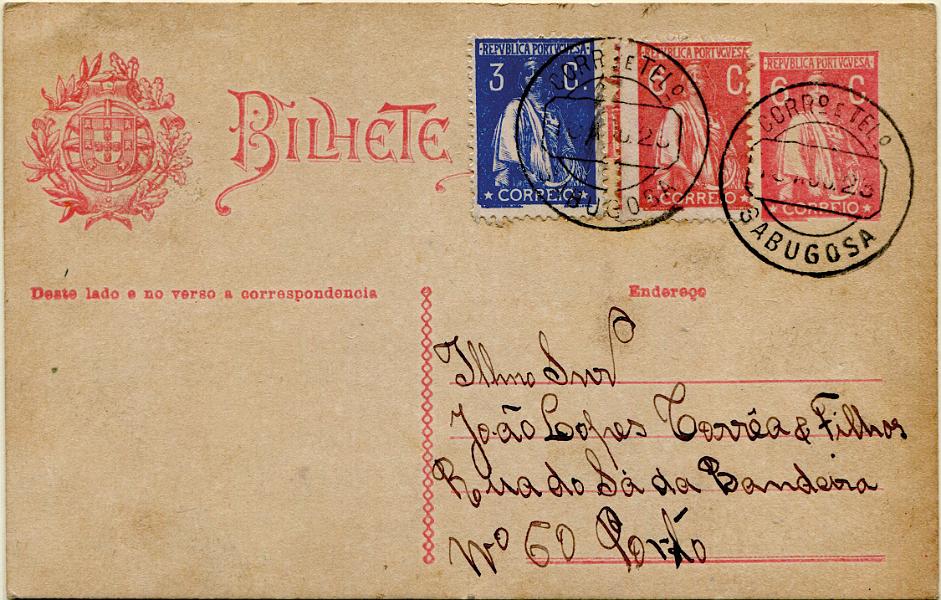 BILHETE
REPVBLICA PORTVGVESA
3 C.
CORREIO
REPVBLICA PORTVGVESA
C.
CORREIO
REPVBLICA PORTVGVESA
6 C.
CORREIO
CORRº E TELº
CORRº E TELº
SABUGOSA
Deste lado e no verso a correspondencia
Endereço
Illmo Snr
João Lopes Corrêa & Filhos
Rua do Sá da Bandeira
Nº 60 Porto